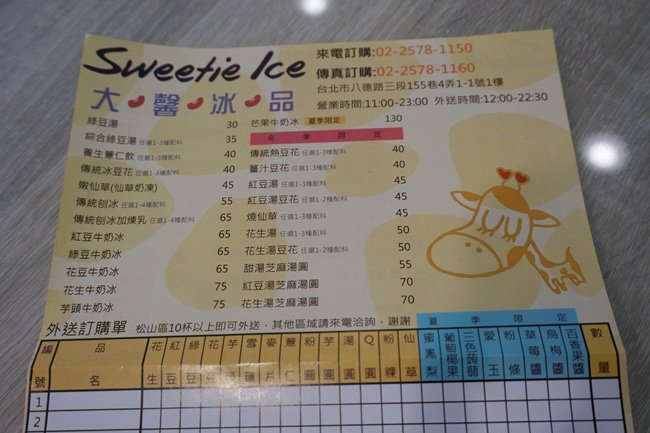 Sweetie Ice
來電訂購:02-2578-1150
傳真訂購:02-2578-1160
大馨冰品
台北市八德路三段155巷4弄1-1號1樓
營業時間:11:00-23:00 外送時間:12:00-22:30
綠豆湯 30
綜合綠豆湯 任選1-3種配料 35
養生薏仁飲 任選1-3種配料 40
傳統冰豆花 任選1-3種配料 40
嫩仙草(仙草奶凍) 45
傳統刨冰 任選1-4種配料 55
傳統刨冰加煉乳 任選1-4種配料 65
紅豆牛奶冰 65
綠豆牛奶冰 65
花豆牛奶冰 65
花生牛奶冰 75
芋頭牛奶冰 75
芒果牛奶冰 夏季限定 130
冬季限定
傳統熱豆花 任選1-3種配料 40
薑汁豆花 任選1-3種配料 40
紅豆湯 任選1-3種配料 40
紅豆湯豆花 任選1-2種配料 45
燒仙草 任選1-3種配料 45
花生湯 任選1-3種配料 50
花生湯豆花 任選1-2種配料 50
甜湯芝麻湯圓 55
紅豆湯芝麻湯圓 70
花生湯芝麻湯圓 70
外送訂購單 松山區10杯以上即可外送，其他區域請來電洽詢，謝謝
夏季限定
編號 品名 花生 紅豆 綠豆 花豆 芋頭 雪蓮 麥片 薏仁 粉圓 芋圓 湯圓 Q圓 粉粿 仙草 蜜鳳梨 葡萄椰果 三色蒟蒻 愛玉 粉條 草莓醬 烏梅醬 百香果醬 數量
1
2